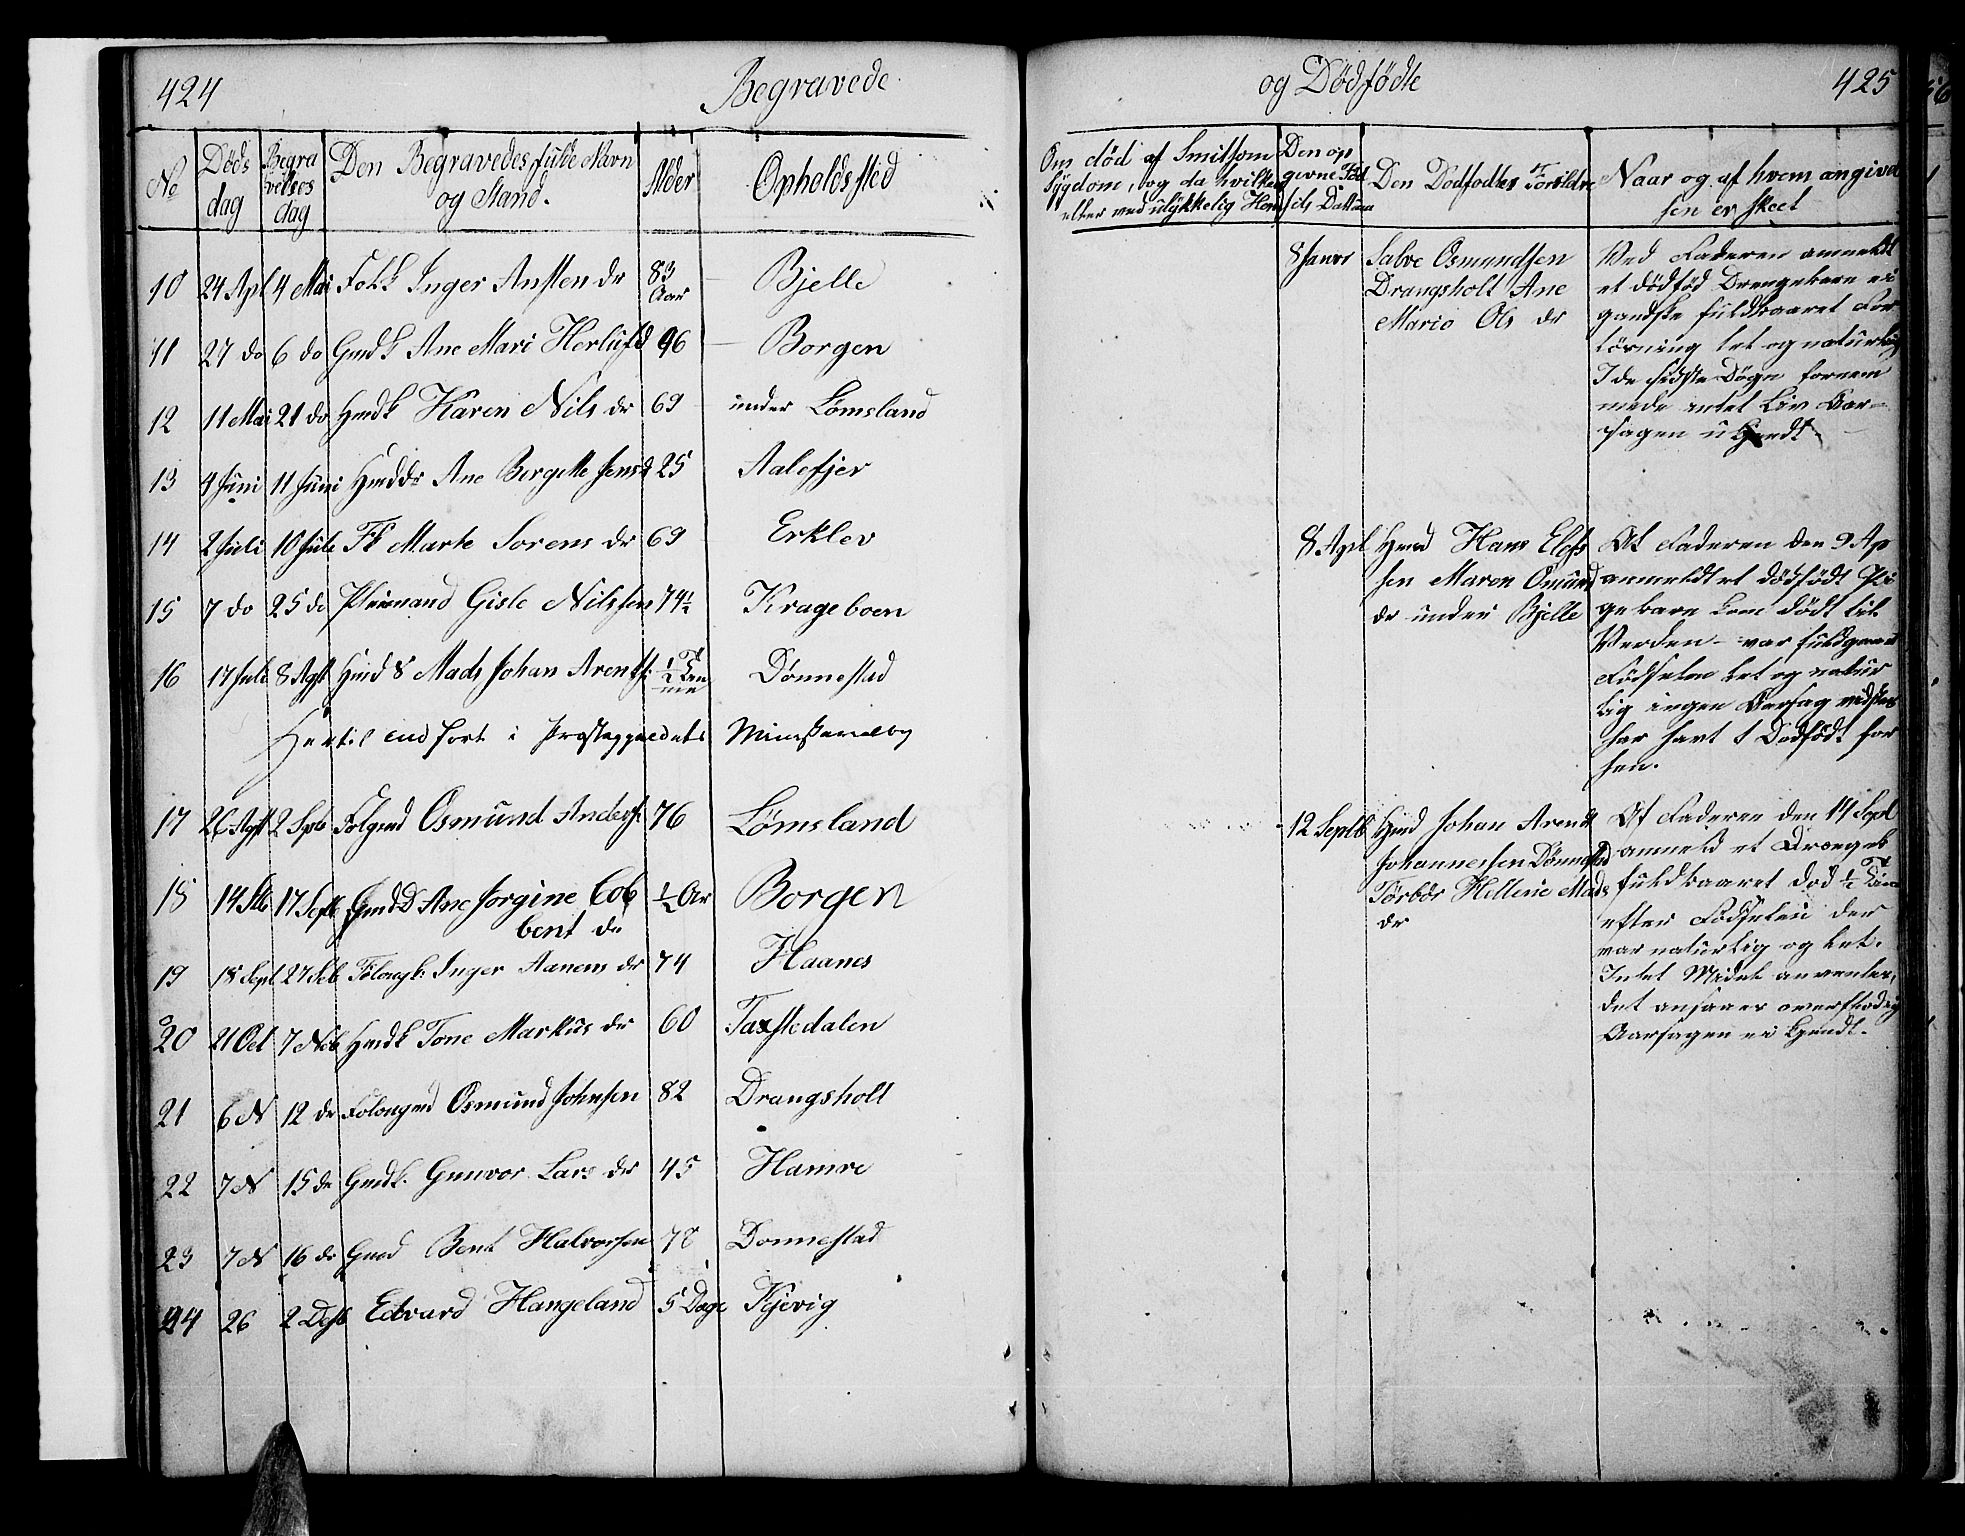 424
Begravede
No
Døds dag
Begravelses dag
Den Begravedes fulde Navn og Stand.
Alder
Opholdssted
10 24 Apl 4 Mai Folk Inger Ansten dr 83 Aar Bjelle
11 27 do 6 do Gmdk Ane Mari Herlufsd 96 Borgen
12 11 Mai 21 do Hmdk Karen Nils dr 69 under Lømsland
13 4 Juni 11 Juni Hmdds Ane Bergette Jensd 25 Aalefjer
14 2 Juli 10 Juli Fk Marte Sorens dr 69 Erklev
15 7 do 25 do Gisle Nilssen 74½ Krageboen
16 17 Juli 8 Agst Hmd S Mads Johan Arents ½ Dønnestad
Hertil indført i Præstegjeldets Ministerialbog
17 26 Agst 2 Sptb Følgmd Osmund Anders 76 Lømsland
18 14 Stb 17 Septb Gmd D Ane Jorgine Col
bent dr ½ Ar Borgen
19 18 Sept 27 Stb Følougk Inger Aanens dr 74 Haanes
20 21 Oct 7 Nvb Hmdk Tone Markus dr 60 Taxstedalen
21 6 N 12 do Følougmd Osmund Johnsen 82 Drangsholt
22 7 N 15 do Gmdk Gunvor Lars dr 45 Hamre
23 7 N 16 do Gmd Bent Halvorsen 78 Donnestad
24 26 2 Decb Edvard Hangeland 5 Dage Kjevig
og Dødfødte
425
Om død af Smitsom
Sygdom, og da hvilken
eller ved ulykkelig Hen
Den op
gevne Fød
sels Dattum
Den Dødfødtes Forældre
Naar og af hvem angivel
sen er skeet
8 Janvr
Salve Osmundsen
Drangsholt Ane
Marie Ols dr
Ved Faderen anmeldt
et dødfød Drengebarn ei
gandske fuldbaaret For
løsning let og naturlig
I de sidste Døgn fornem
mede intet Liv Aar-
sagen ukjendt
8 Apl
Hmd Hans Elefs
sen Maren Omund
dr under Bjelle
At Faderen den 9 Ap
anmeldt et dødfødt Pi
gebarn kom dødt til
Verden - var fuldgaaet
Fødselen let og natur
lig ingen Aarsag vidstes
har havt 1 Dødfødt før
hen.
12 Septb
Hmd Johan Arendt
Johannessen Dønnestad
Tørbør Hellene Mads
dr
Af Faderen den 14 Sept
anmeld et Drengeb
fuldbaaret død ½ Time
efter Fødselen der
var naturlig og let.
Intet Middel anventes,
det ansaaes overflødig
Aarsagen ei kjendt.